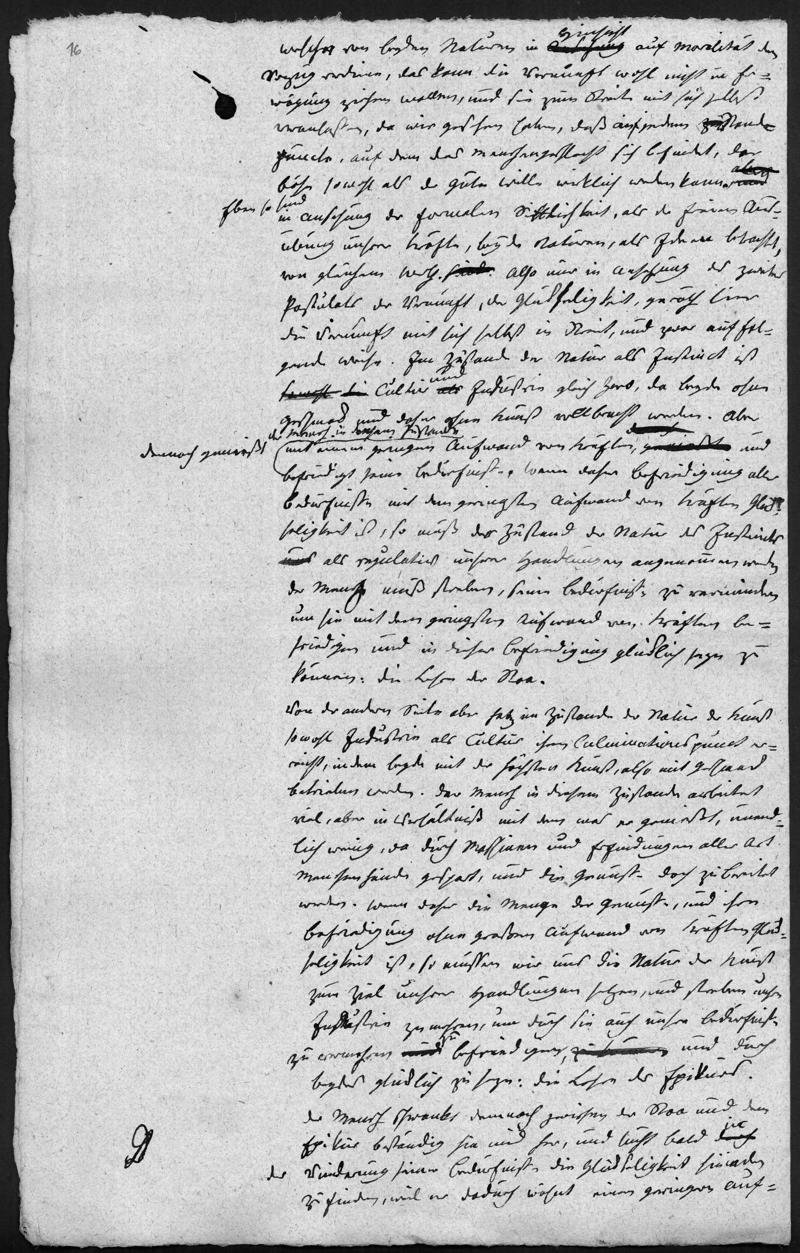 16
welcher von beyden Naturen in Hinsicht auf Moralität der
Vorzug verdiene, das kann die Vernunft wohl nicht in Er=
wägung ziehen wollen, und sie zum Streite mit sich selbst
veranlassen, da wir gesehen haben, daß auf jedem Stand=
puncte, auf dem das Menschengeschlecht sich befindet, der
böse sowohl als der gute Wille wirklich werden kann.
Eben so sind
in Ansehung der formalen Sittlichkeit, als der freien Aus=
übung unserer Kräfte, beyde Naturen, als Ideen betracht,
von gleichem Werth. Also nur in Ansehung des zweiten
Postulats der Vernunft, der Glückseligkeit, geräth hier
die Vernunft mit sich selbst in Streit, und zwar auf fol=
gende Weise. Im Zustande der Natur als Instinct ist
Cultur und Industrie gleich Zero, da beyde ohne
Geschmack und daher ohne Kunst vollbracht werden. Aber
dennoch genießt der Mensch in diesem Zustande
mit einem geringen Aufwand von Kräften, und
befriedigt seine Bedürfnisse. Wenn daher Befriedigung aller
Bedürfnisse mit dem geringsten Aufwand von Kräften Glück=
seligkeit ist, so muß der Zustand der Natur des Instincts
als regulativ unserer Handlungen angenommen werden
der Mensch muß streben, seine Bedürfnisse zu vermindern
um sie mit dem geringsten Aufwand von Kräften be=
friedigen und in dieser Befriedigung glücklich seyn zu
können: die Lehre der Stoa.
Von der andern Seite aber hat im Zustande der Natur der Kunst
sowohl Industrie als Cultur ihren Culminationspunct er=
reicht, indem beyde mit der höchsten Kunst, also mit Geschmack
betrieben werden. Der Mensch in diesem Zustande arbeitet
viel, aber in Verhältniß mit dem was er genießt, unend=
lich wenig, da durch Maschinen und Erfindungen aller Art
Menschenhände gespart, und die Genüsse doch zubereitet
werden. Wenn daher die Menge der Genüsse, und ihre
Befriedigung ohne großen Aufwand von Kräften Glück=
seligkeit ist, so müssen wir uns die Natur der Kunst
zum Ziel unserer Handlungen setzen, und streben unsere
Industrie zu mehren, um durch sie auch unsere Bedürfnisse
zu vermehren zu befriedigen, und durch
beydes glücklich zu seyn: die Lehre des Epikurs.
Der Mensch schwankt demnach zwischen der Stoa und dem
Epikur beständig hin und her, und sucht bald in
der Minderung seiner Bedürfnisse die Glückseligkeit hienieden
zu finden, weil er dadurch wähnt einen geringern Auf=